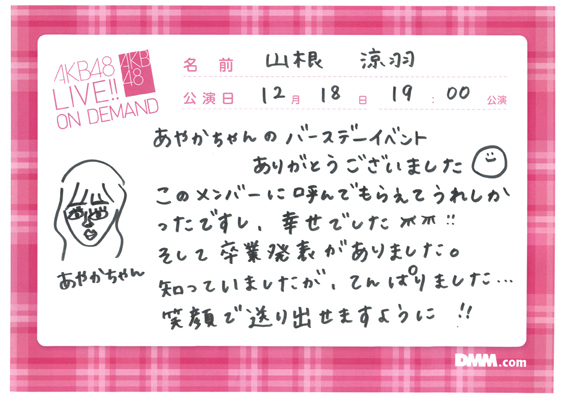 AKB48
LIVE!!
ON DEMAND
AKB
48
名前 山根 涼羽
公演日 12月 18日 19:00 公演
あやかちゃんのバースデーイベント
ありがとうございました
このメンバーに呼んでもらえてうれしか
ったですし、幸せでした!!
そして卒業発表がありました。
知っていましたが、てんぱりました…
笑顔で送り出せますように!!
あやかちゃん
DMM.com